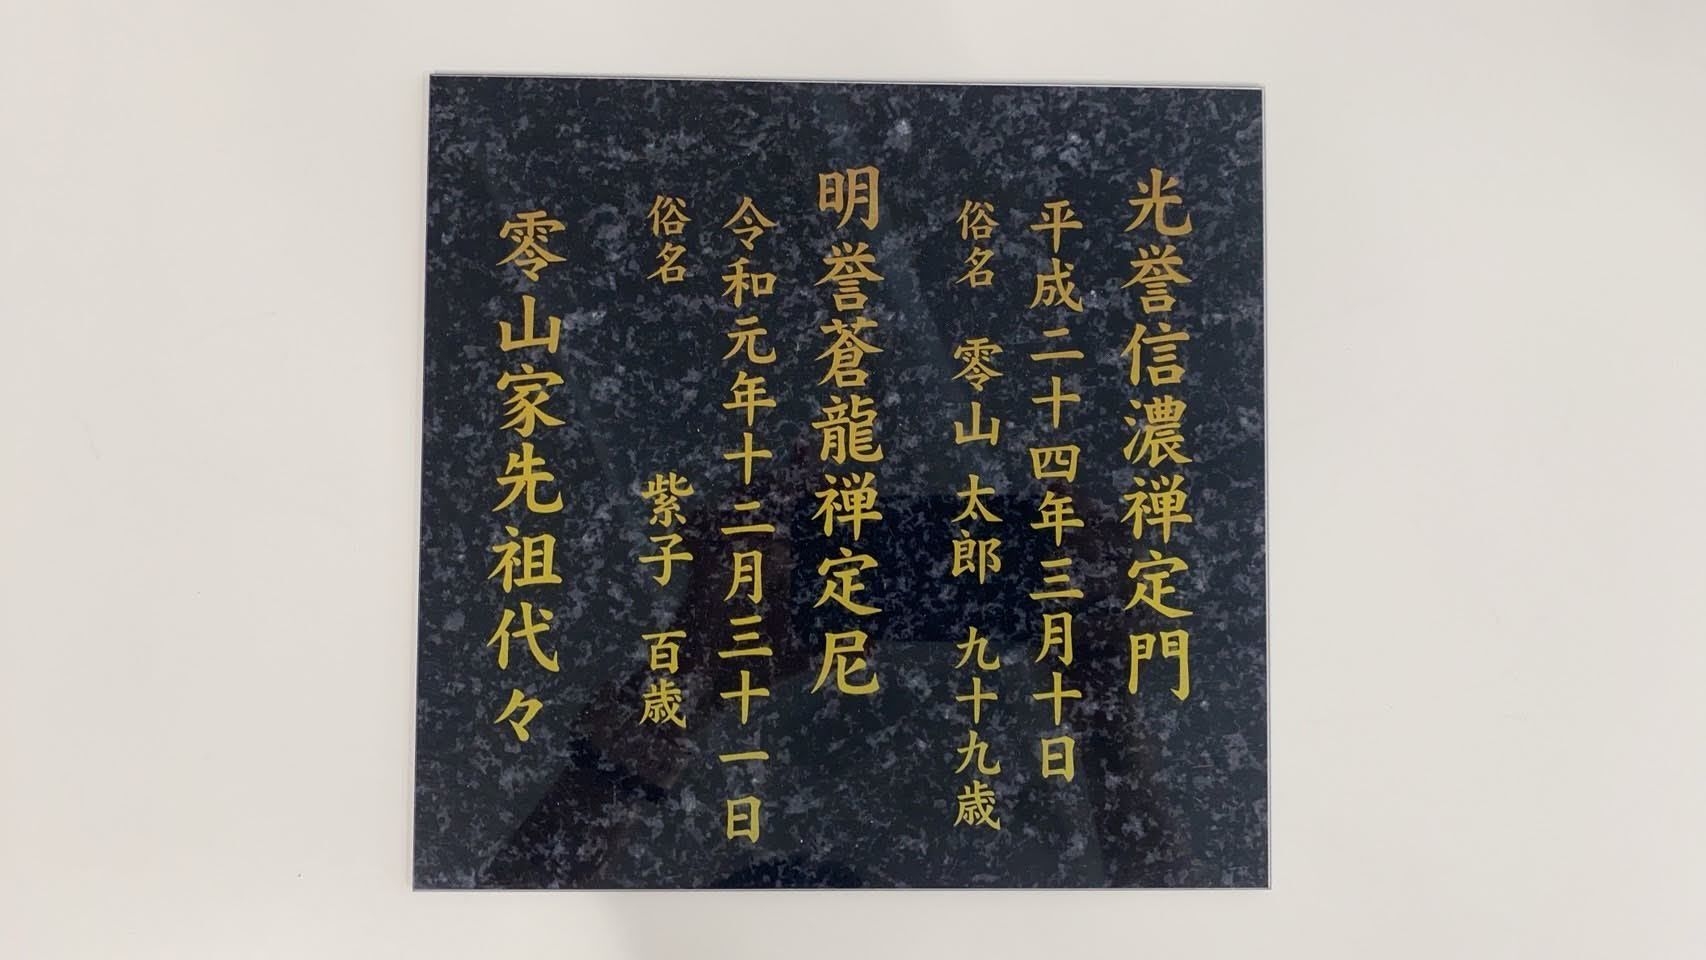 光誉信濃禅定門
平成二十四年三月十日
俗名 零山 太郎 九十九歳
明誉蒼龍禅定尼
令和元年十二月三十一日
俗名 紫子 百歳
零山家先祖代々